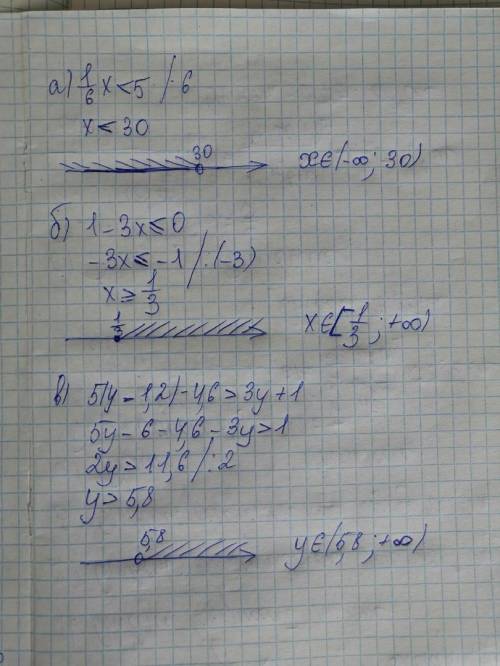 а) 1/6 x < 5 / · 6
x < 30
30
x ∈ (-∞; 30)
б) 1 - 3x ≤ 0
-3x ≤ -1 / : (-3)
x ≥ 1/3
1/3
x ∈ [1/3; +∞)
в) 5(y - 1,2) - 4,6 > 3y + 1
5y - 6 - 4,6 - 3y > 1
2y > 11,6 / : 2
y > 5,8
5,8
y ∈ (5,8; +∞)